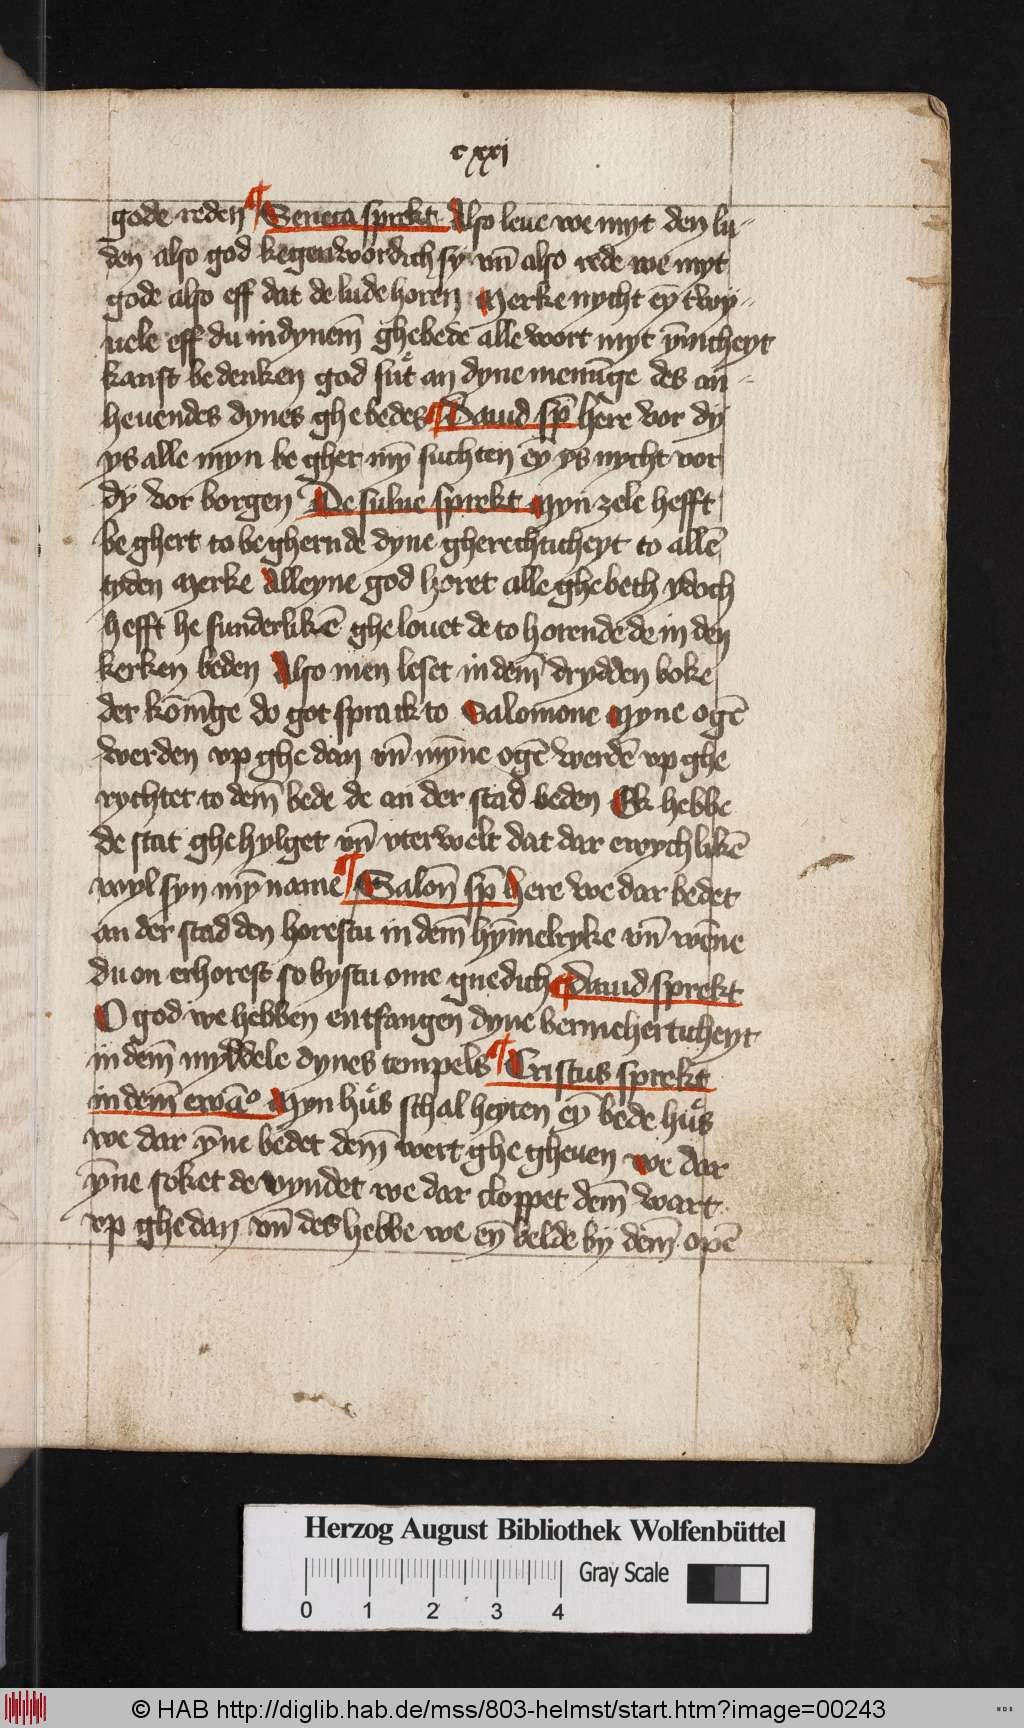 cxxi
gode reden ¶ Seneca sprekt Also leue we myt den lu-
den also god kegenwordich sy vn̄ also rede we myt
gode also eff dat de lude horen Merke nycht ey̅ twy-
uele eff du in dynem̄ ghebede alle wort myt y̅nicheyt
kanst bedenken god sut an dyne meni̅ge des an-
heuendes dynes ghebedes ¶ Dauid sp̄ here vor dy
ys alle myn begher my̅ suchten ey̅ ys nycht vor
dy vorborgen De sulue sprekt Myn zele hefft
beghert to beghernde dyne gherechticheyt to allē
tyden Merke Alleyne god horet alle ghebeth ydoch
hefft he sunderlikē ghelouet de to horende de in den
kerken beden Also men leset in dem̄ drydden boke
der kȫni̅ge do got sprack to Salomone Myne ogē
werden vp ghedan vn̄ my̅ne ogē werdē vp ghe
rychtet to dem̄ bede de an der stad beden Ek hebbe
de stat ghehylget vn̄ vterwelt dat dar ewychlikē
wyl syn my̅ name ¶ Salon̄ sp̄ here we dar bedet
an der stad den horestu in dem̄ hy̅melryke vn̄ wēne
du on erhorest so bystu ome gnedich ¶ dauid sprekt
O god we hebben entfangen dyne bermeherticheyt
in dem̄ myddele dynes tempels ¶ Cristus sprekt
in dem̄ ewā° Myn hus schal heyten ey̅ bede hus
we dar y̅ne bedet dem̄ wert ghegheuen we dar
y̅ne soket de vyndet we dar cloppet dem̄ wart
vp ghedan vn̄ des hebbe we ey̅ belde by dem̄ opē
Herzog August Bibliothek Wolfenbüttel
Gray Scale
0 1 2 3 4
© HAB http://diglib.hab.de/mss/803-helmst/start.htm?image=00243